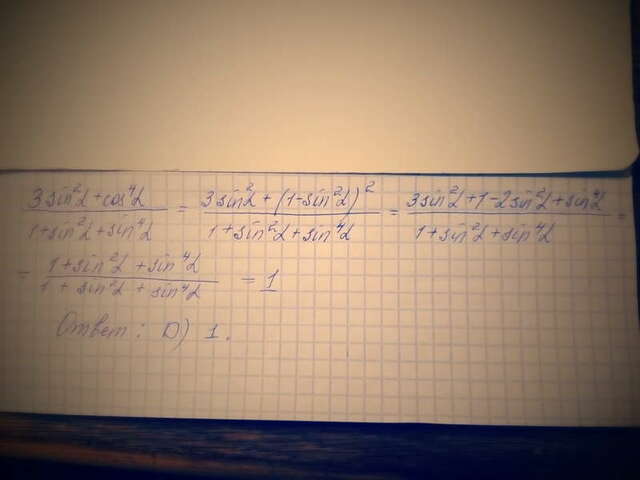 (3sin²α+cos⁴α)/(1+sin²α+sin⁴α) = (3sin²α+(1-sin²α)²)/(1+sin²α+sin⁴α) = (3sin²α+1-2sin²α+sin⁴α)/(1+sin²α+sin⁴α) =
= (1+sin²α+sin⁴α)/(1+sin²α+sin⁴α) = 1
Ответ: D) 1.